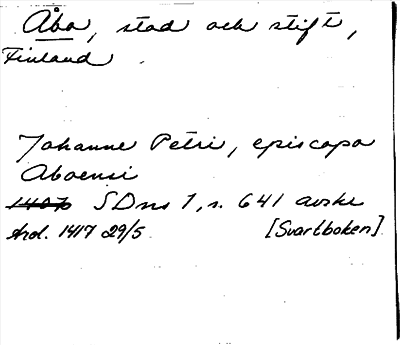 Åbo, stad och stift,
Finland.
Johanne Petri, episcopo
Aboensi
1407 SDns 1, s. 641 avskr
And. 1417 29/5 [Svartboken]